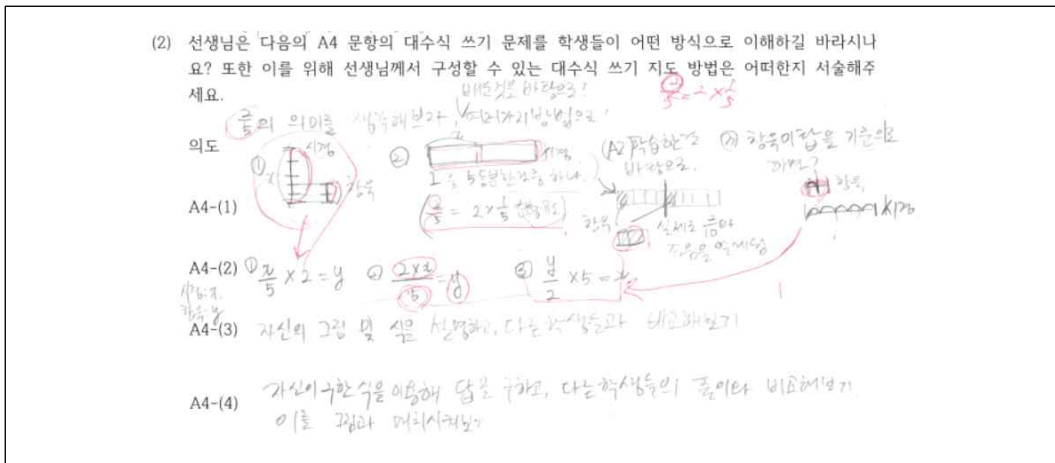 (2) 선생님은 다음의 A4 문항의 대수식 쓰기 문제를 학생들이 어떤 방식으로 이해하길 바라시나
요? 또한 이를 위해 선생님께서 구성할 수 있는 대수식 쓰기 지도 방법은 어떠한지 서술해주
세요.
배운것을 바탕으로!
2/5 = 2 × 1/5
2/5의 의미를 생각해보자, 여러가지방법으로!
의도
① x 시경 함욱
② 시경
1을 5등분한것중 하나.
(2/5 = 2 × 1/5)
(A2)학습한것 바탕으로.
함욱
실제로 금마
③ 함욱이답을 기준으로
하면?
함욱
시경
A4-(1)
A4-(2) ① x/5 × 2 = y ② 2×x/5 = y ③ y/2 × 5 = x
시경: x.
함욱: y
A4-(3) 자신의 그림 및 식을 설명하고, 다른학생들과 비교해보기
A4-(4) 자신이구한 식을이용해 답을 구하고, 다른학생들의 풀이와 비교해보기.
이를 그림과 매치시켜보기